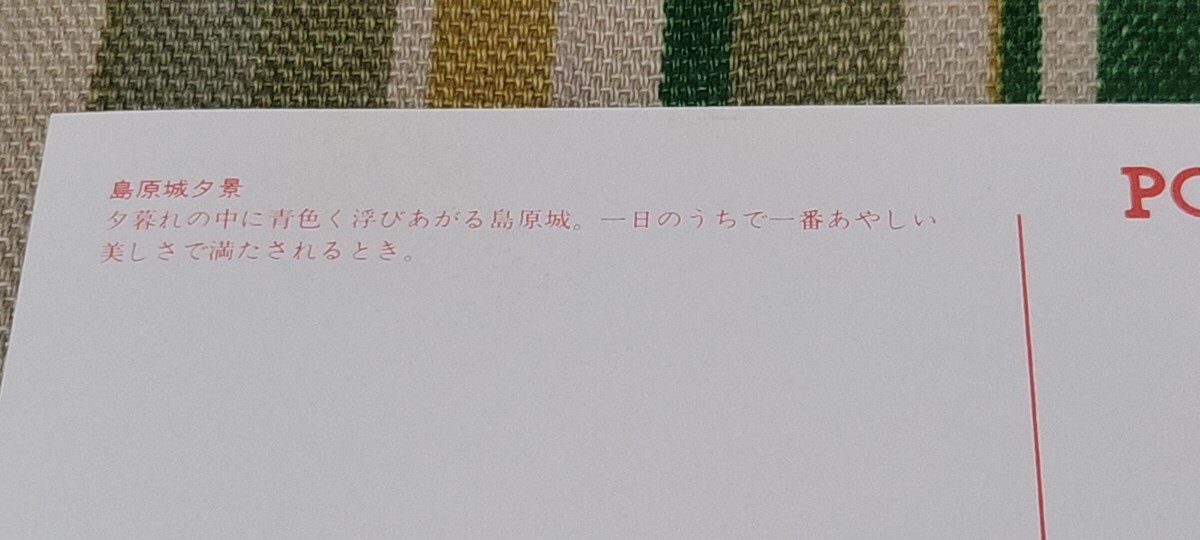 島原城夕景
夕暮れの中に青色く浮びあがる島原城。一日のうちで一番あやしい
美しさで満たされるとき。
PO